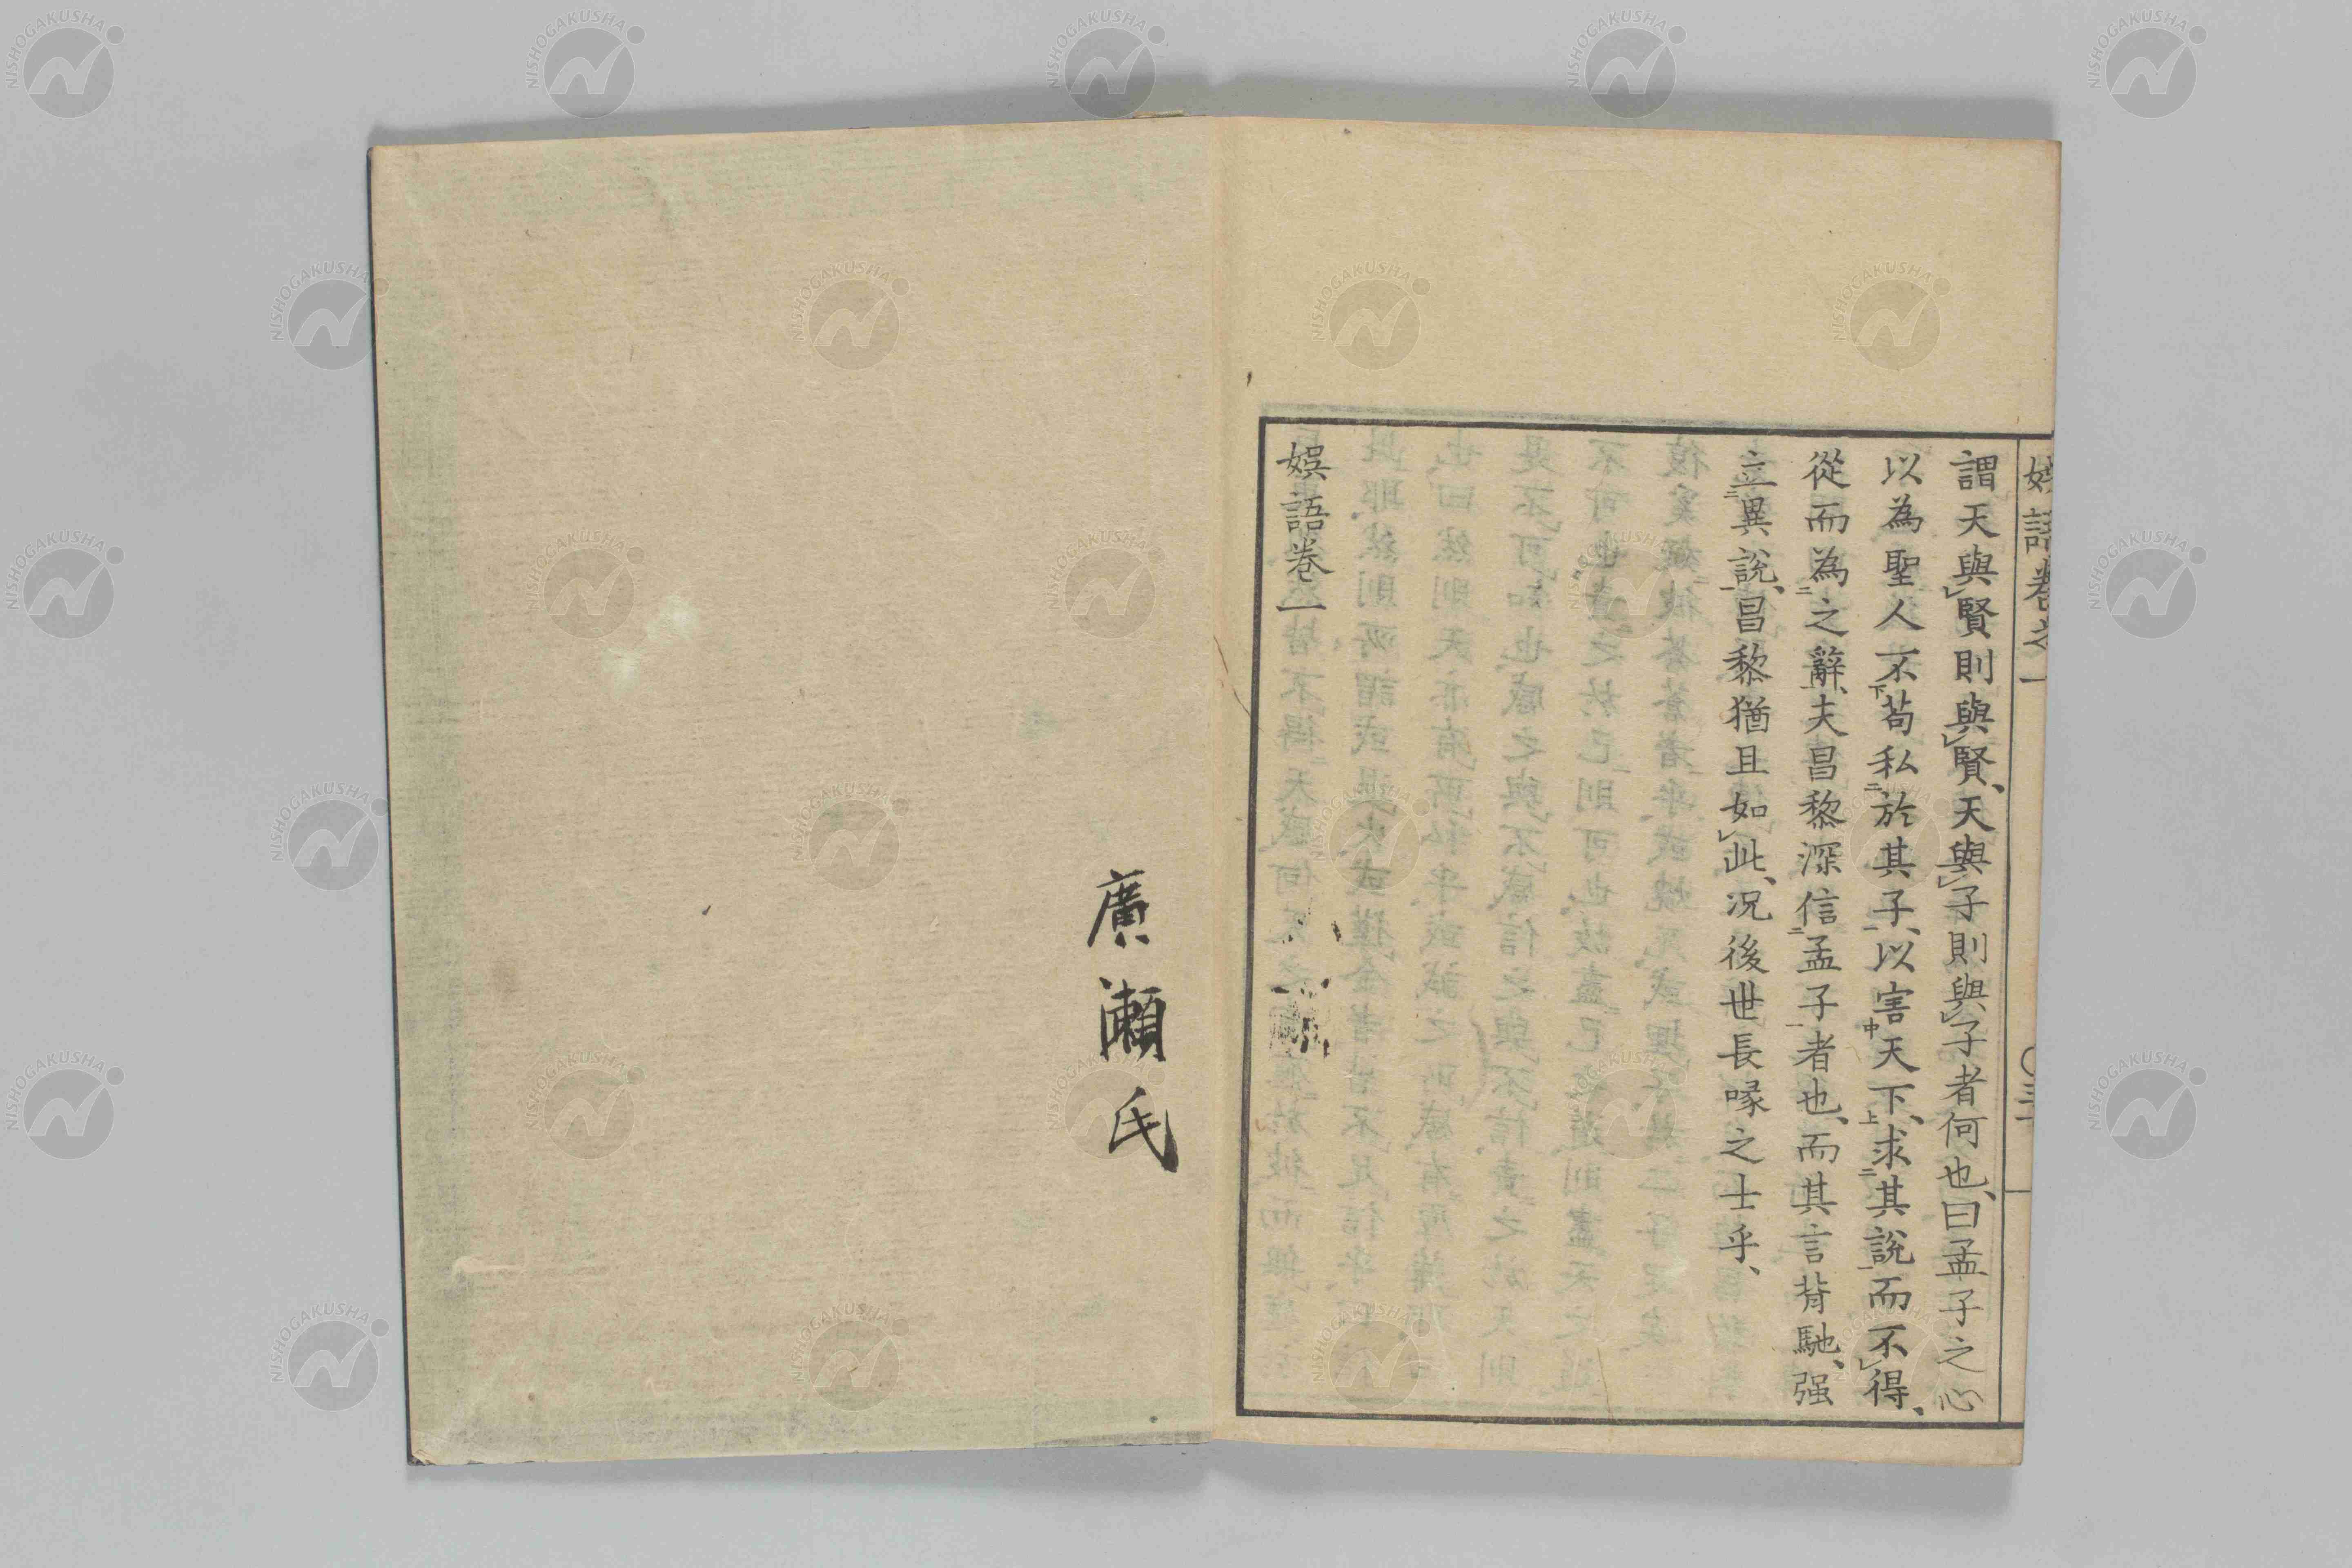 娯語巻之一
謂天與賢則與賢、天與子則與子者何也、曰孟子之心
以為聖人不下苟私二於其子一、以害中天下上、求二其說一而不得、
從而為二之辭一、夫昌黎深信二孟子一者也、而其言背馳、强
立二異說一、昌黎猶且如此、况後世長喙之士乎、
娯語巻一
廣瀬氏
NISHOGAKUSHA